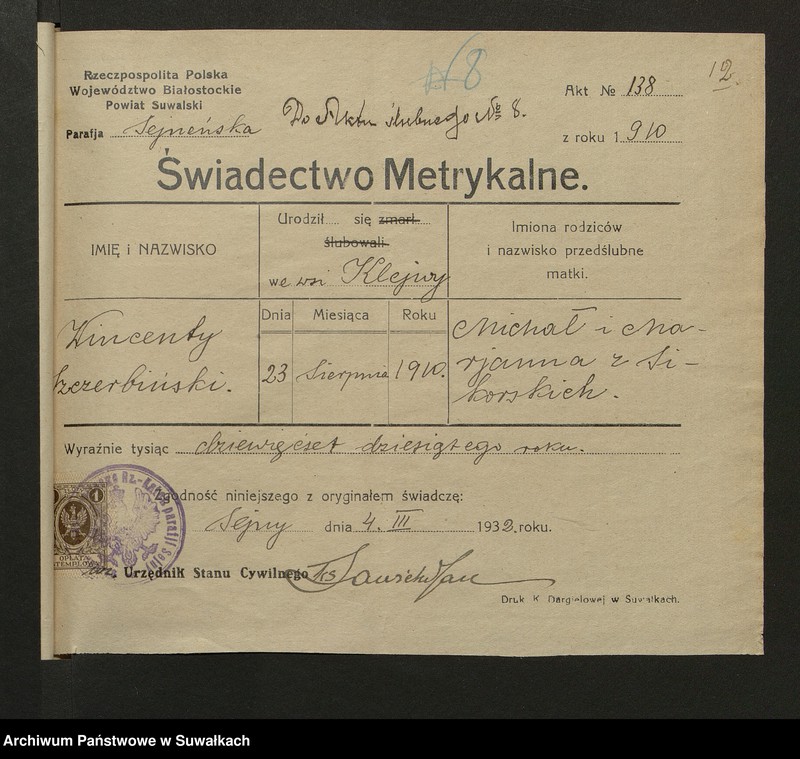 № 8
12.
Rzeczpospolita Polska
Województwo Białostockie
Powiat Suwalski
Parafja Sejneńska
Do Aktu ślubnego № 8.
Akt № 138
z roku 1 910
Świadectwo Metrykalne.
IMIĘ i NAZWISKO
Urodził..... się zmarł.....
ślubowali
we wsi Klejwy
Imiona rodziców
i nazwisko przedślubne
matki.
Dnia Miesiąca Roku
Wincenty
Szczerbiński.
23 Sierpnia 1910.
Michał i Ma-
rjanna z Si-
korskich.
Wyraźnie tysiąc dziewięćset dziesiątego roku.
Zgodność niniejszego z oryginałem świadczę:
Sejny dnia 4. III 1932. roku.
Urzędnik Stanu Cywilnego Ks
Druk K. Dargielowej w Suwałkach.
1
OPŁATA
STEMPLOWA
Archiwum Państwowe w Suwałkach